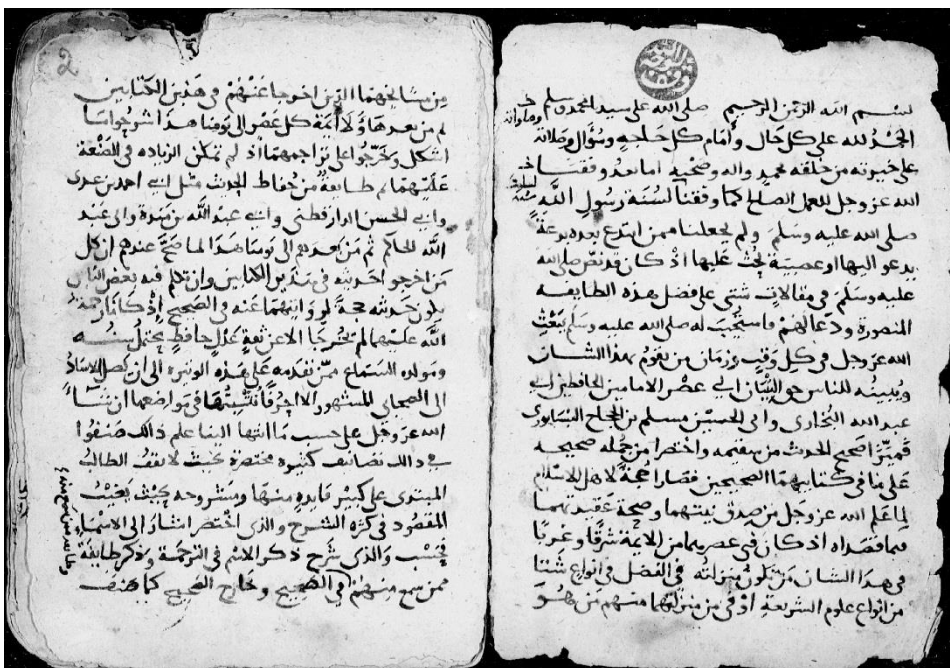 بسم الله الرحمن الرحيم صلى الله على سيد محمد وسلم
الحمد لله على كل حال وأمام كل حاجة وسؤال وصلاته
على خيرته من خلقه محمد واله وصحبه اما بعد وفقنا
الله عز وجل للعمل الصالح كما وفقنا لسنة رسول الله
صلى الله عليه وسلم ولم يجعلنا ممن ابتدع بعده بدعة
يدعو اليها او عصبية يحث عليها اذ كان قد نص صلى الله
عليه وسلم في مقالات شتى على فضل هذه الطايفه
المنصورة ودعا لهم فاستجيب له صلى الله عليه وسلم يبعث
الله عز وجل في كل وقت وزمان من يقوم بهذا الشان
ويبينه للناس حق التبيان الى عصر الامامين الحافظين ابي
عبد الله البخاري وابي الحسين مسلم بن الحجاج النيسابوري
فميزا صحيح الحديث من سقيمه واختصرا من جمله صحيحه
على ما في كتابيهما الصحيحين فصارا حجة لاهل الاسلام
لما علم الله عز وجل من صدق نيتهما وصحة عقيدتهما
فيما قصداه اذ كان في عصرهما من الايمة شرقا وغربا
في هذا الشان من تكون منزلته في الفضل في انواع شتا
من انواع علوم الشريعة او في من منزلتهما منهم من هو
من مشايخهما الذين اخرجا عنهم في هذين الكتابين
ثم من بعدهما ولا ايمة كل عصر الى يومنا هذا شرحوا ما
اشكل وخرجوا على تراجمهما اذ لم تمكن الزياده في الصنعة
عليهما ثم طايفة من حفاظ الحديث مثل ابي احمد بن عدي
وابي الحسن الدارقطني وابي عبد الله بن مندة وابي عبد
الله الحاكم ثم من بعدهم الى يومنا هذا لما صح عندهم ان كل
من اخرجوا حديثه في هذين الكتابين وان تكلم فيه بعض الناس
يكون حديثه حجة لروايتهما عنه في الصحيح اذ كانا رحمة
الله عليهما لم يخرجا الا عن ثقة عدل حافظ يحتمل سنه
ومولده السماع ممن تقدمه على هذه الوتيرة الى ان يصل الاسناد
الى الصحابي المشهور الا احرفا نبينها في مواضعها ان شا
الله عز وجل على حسب ما انتها الينا علم ذالك صنفوا
في ذالك تصانيف كثيره مختصرة بحيث لا يقف الطالب
المبتدي على كبير فايده منها ومشروحه بحيث يغيب
المقصود في كثرة الشرح والذي اختصر اشار الى الاسماء
فحسب والذي شرح ذكر الاسم في الترجمة وذكر طايفة
ممن سمع منهم في الصحيح وخارج الصحيح كما صنف